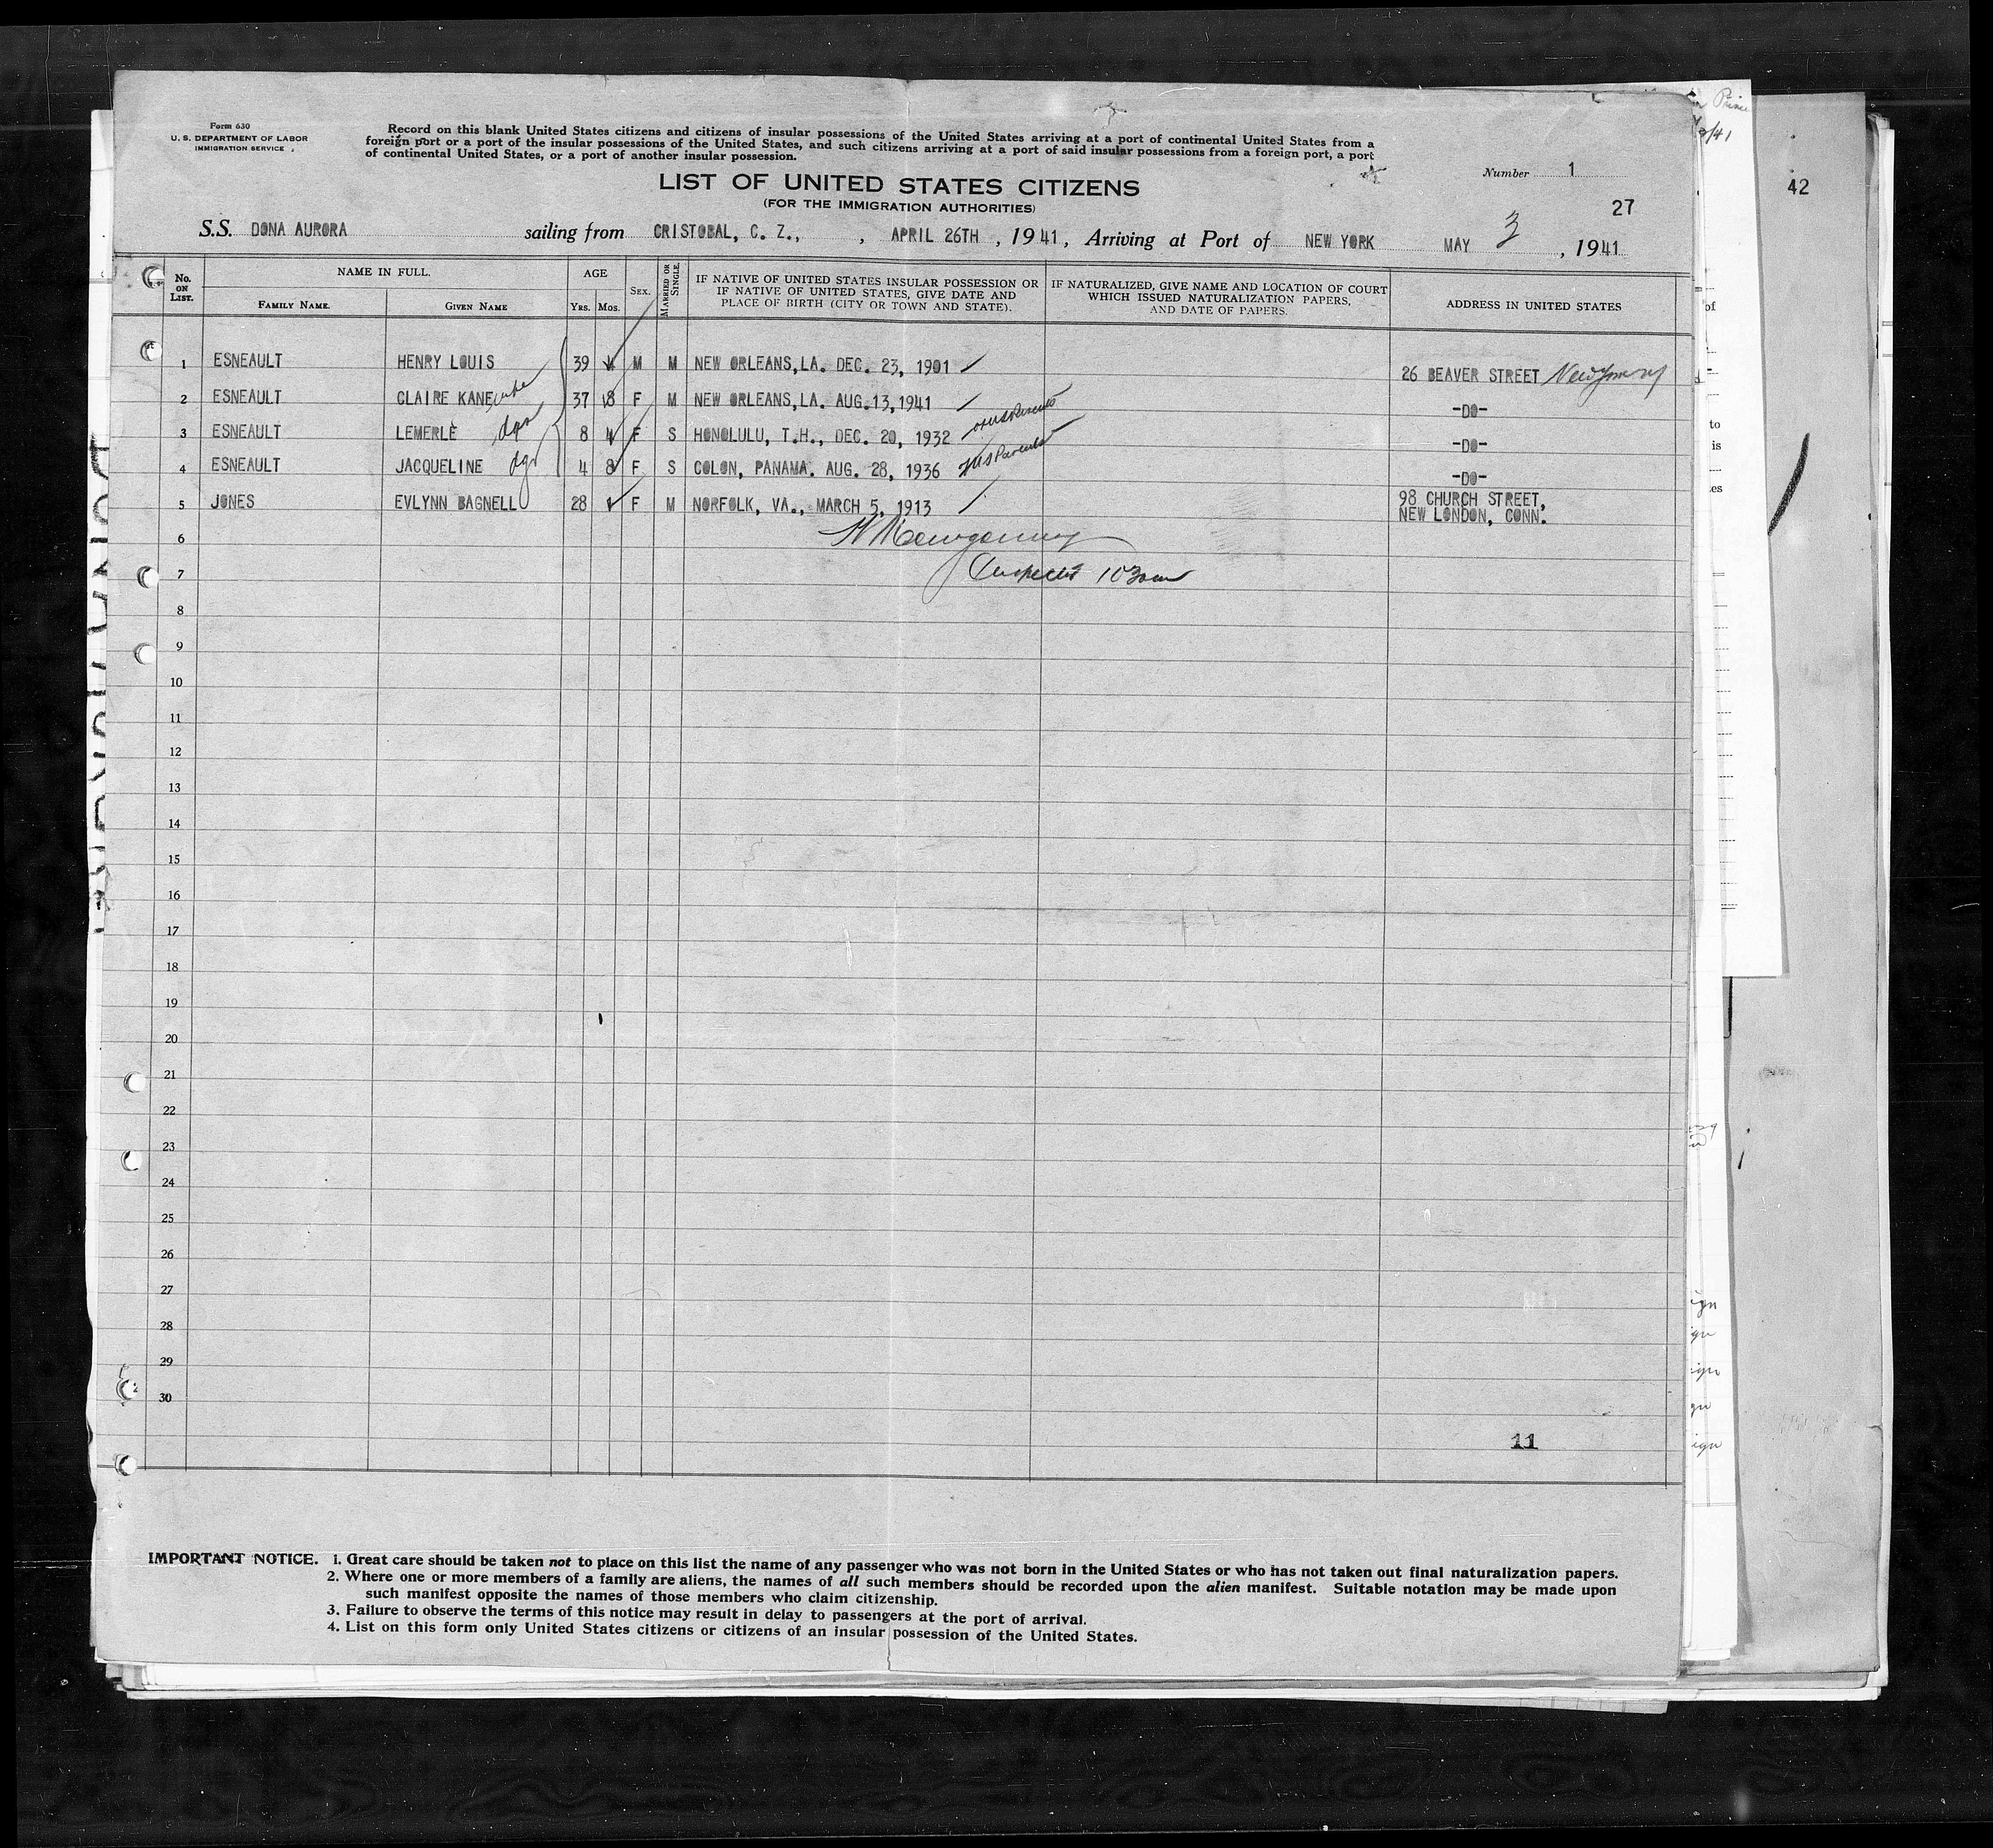 Form 630
U. S. DEPARTMENT OF LABOR
IMMIGRATION SERVICE
Record on this blank United States citizens and citizens of insular possessions of the United States arriving at a port of continental United States from a
foreign port or a port of the insular possessions of the United States, and such citizens arriving at a port of said insular possessions from a foreign port, a port
of continental United States, or a port of another insular possession.
LIST OF UNITED STATES CITIZENS
(FOR THE IMMIGRATION AUTHORITIES)
Number 1
27
42
S.S. DONA AURORA sailing from CRISTOBAL, C. Z., , APRIL 26TH , 1941, Arriving at Port of NEW YORK MAY 3 , 1941
No. ON LIST. NAME IN FULL. FAMILY NAME. GIVEN NAME AGE YRS. MOS. SEX. MARRIED OR SINGLE. IF NATIVE OF UNITED STATES INSULAR POSSESSION OR IF NATIVE OF UNITED STATES, GIVE DATE AND PLACE OF BIRTH (CITY OR TOWN AND STATE). IF NATURALIZED, GIVE NAME AND LOCATION OF COURT WHICH ISSUED NATURALIZATION PAPERS, AND DATE OF PAPERS. ADDRESS IN UNITED STATES
1 ESNEAULT HENRY LOUIS 39 4 M M NEW ORLEANS,LA. DEC. 23, 1901 26 BEAVER STREET New York
2 ESNEAULT CLAIRE KANE wife 37 8 F M NEW ORLEANS,LA. AUG.13,1941 -DO-
3 ESNEAULT LEMERLE dgr 8 4 F S HONOLULU, T.H., DEC. 20, 1932 US Parents -DO-
4 ESNEAULT JACQUELINE dgr 4 8 F S COLON, PANAMA. AUG. 28, 1936 US Parents -DO-
5 JONES EVLYNN BAGNELL 28 1 F M NORFOLK, VA., MARCH 5, 1913 98 CHURCH STREET,
NEW LONDON, CONN.
6
7
8
9
10
11
12
13
14
15
16
17
18
19
20
21
22
23
24
25
26
27
28
29
30
11
IMPORTANT NOTICE. 1. Great care should be taken not to place on this list the name of any passenger who was not born in the United States or who has not taken out final naturalization papers.
2. Where one or more members of a family are aliens, the names of all such members should be recorded upon the alien manifest. Suitable notation may be made upon
such manifest opposite the names of those members who claim citizenship.
3. Failure to observe the terms of this notice may result in delay to passengers at the port of arrival.
4. List on this form only United States citizens or citizens of an insular possession of the United States.